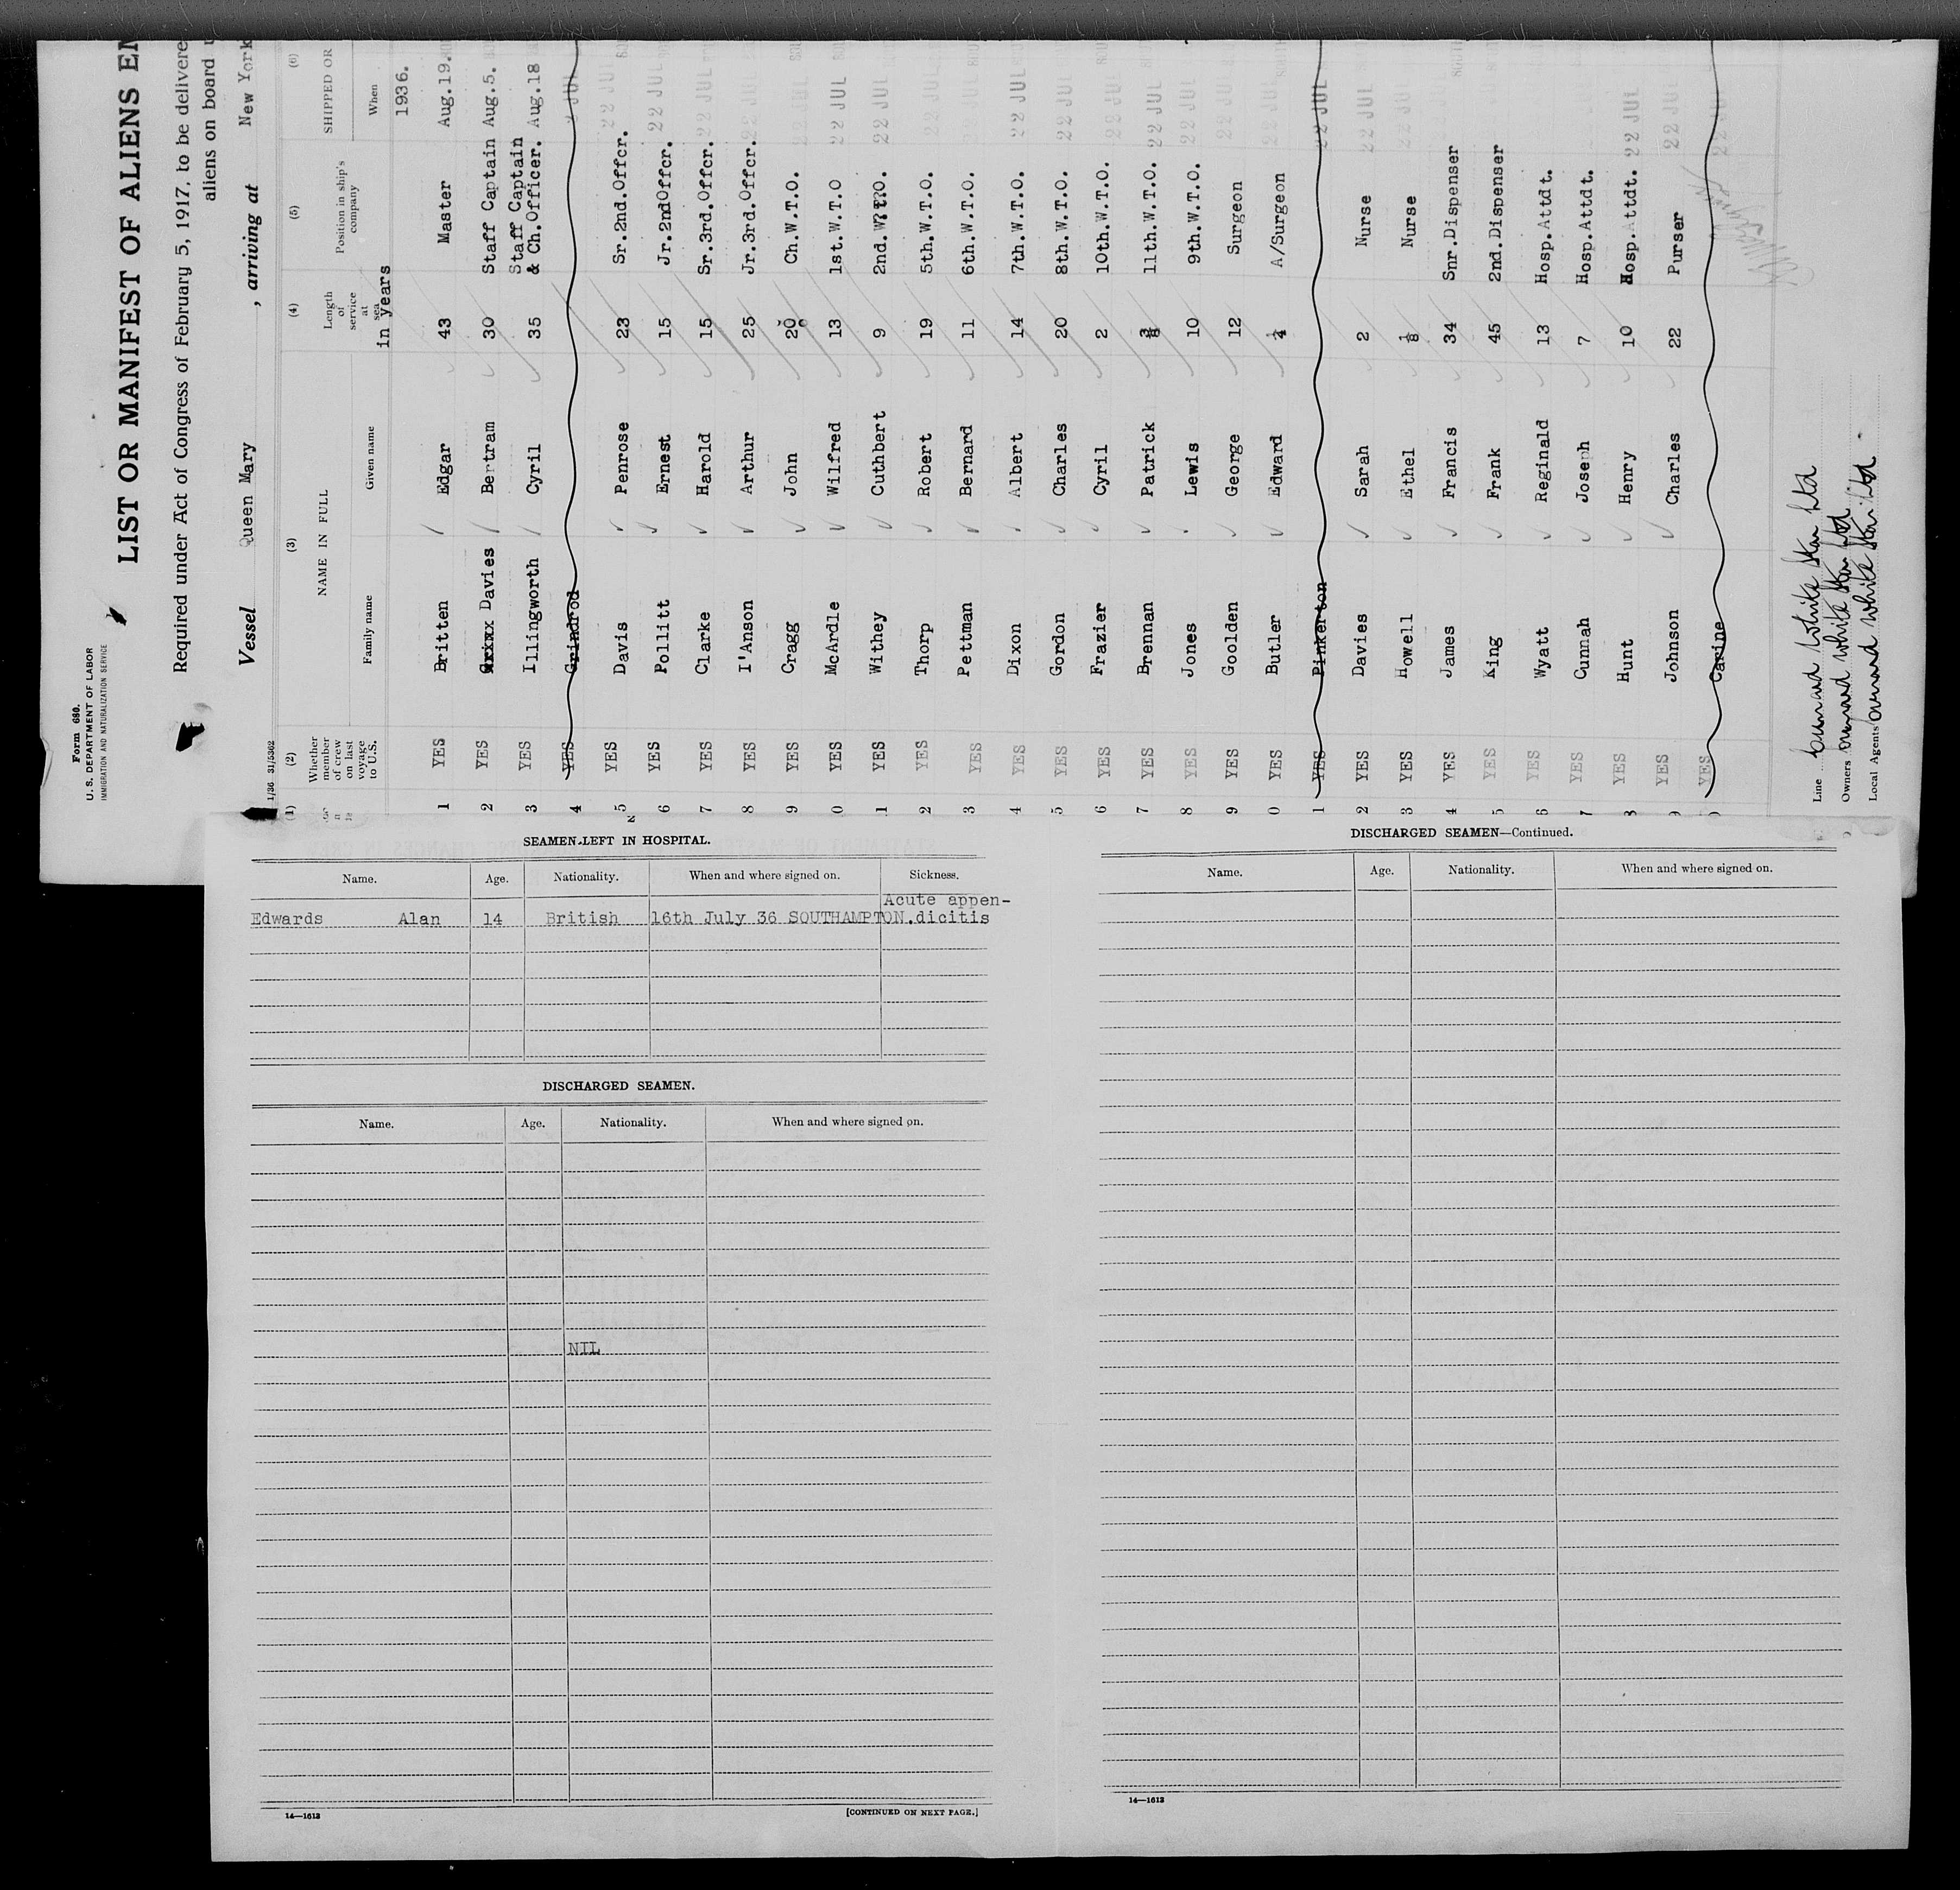 Form 680.
U. S. DEPARTMENT OF LABOR
IMMIGRATION AND NATURALIZATION SERVICE
LIST OR MANIFEST OF ALIENS EM
Required under Act of Congress of February 5, 1917, to be delivere
aliens on board
Vessel Queen Mary, arriving at New York
1/36 31/5362
(1) (2) (3) (4) (5) (6)
Whether member of crew on last voyage to U.S. NAME IN FULL Length of service at sea Position in ship's company SHIPPED OR
Family name Given name in years When
1936.
1 YES Britten Edgar 43 Master Aug.19.
2 YES Davies Bertram 30 Staff Captain Aug.5.
3 YES Illingworth Cyril 35 Staff Captain & Ch.Officer. Aug.18
4 YES Grindrod JUL
5 YES Davis Penrose 23 Sr.2nd.Offcr. 22 JUL
6 YES Pollitt Ernest 15 Jr.2ndOffcr. 22 JUL
7 YES Clarke Harold 15 Sr.3rd.Offcr. 22 JUL
8 YES I'Anson Arthur 25 Jr.3rd.Offcr. 22 JUL
9 YES Cragg John 20 Ch.W.T.O. 22 JUL
0 YES McArdle Wilfred 13 1st.W.T.O 22 JUL
1 YES Withey Cuthbert 9 2nd.W.T.O. 22 JUL
2 YES Thorp Robert 19 5th.W.T.O. 22 JUL
3 YES Pettman Bernard 11 6th.W.T.O. JUL
4 YES Dixon Albert 14 7th.W.T.O. 22 JUL
5 YES Gordon Charles 20 8th.W.T.O. 22 JUL
6 YES Frazier Cyril 2 10th.W.T.O. 22 JUL
7 YES Brennan Patrick 3/8 11th.W.T.O. 22 JUL
8 YES Jones Lewis 10 9th.W.T.O. 22 JUL
9 YES Goolden George 12 Surgeon 22 JUL
0 YES Butler Edward 1/4 A/Surgeon 22 JUL
1 YES Pinkerton 22 JUL
2 YES Davies Sarah 2 Nurse 22 JUL
3 YES Howell Ethel 1/8 Nurse 22 JUL
4 YES James Francis 34 Snr.Dispenser
5 YES King Frank 45 2nd.Dispenser
6 YES Wyatt Reginald 13 Hosp.Attdt.
7 YES Cunnah Joseph 7 Hosp.Attdt.
8 YES Hunt Henry 10 Hosp.Attdt. 22 JUL
9 YES Johnson Charles 22 Purser 22 JUL
0 YES Carine 22 JUL
Line Cunard White Star Ltd
Owners Cunard White Star Ltd
Local Agents Cunard White Star Ltd
SEAMEN LEFT IN HOSPITAL.
Name. Age. Nationality. When and where signed on. Sickness.
Edwards Alan 14 British 16th July 36 SOUTHAMPTON. Acute appen-
dicitis
DISCHARGED SEAMEN.
Name. Age. Nationality. When and where signed on.
NIL
14—1613
[CONTINUED ON NEXT PAGE.]
DISCHARGED SEAMEN—Continued.
Name. Age. Nationality. When and where signed on.
14—1613